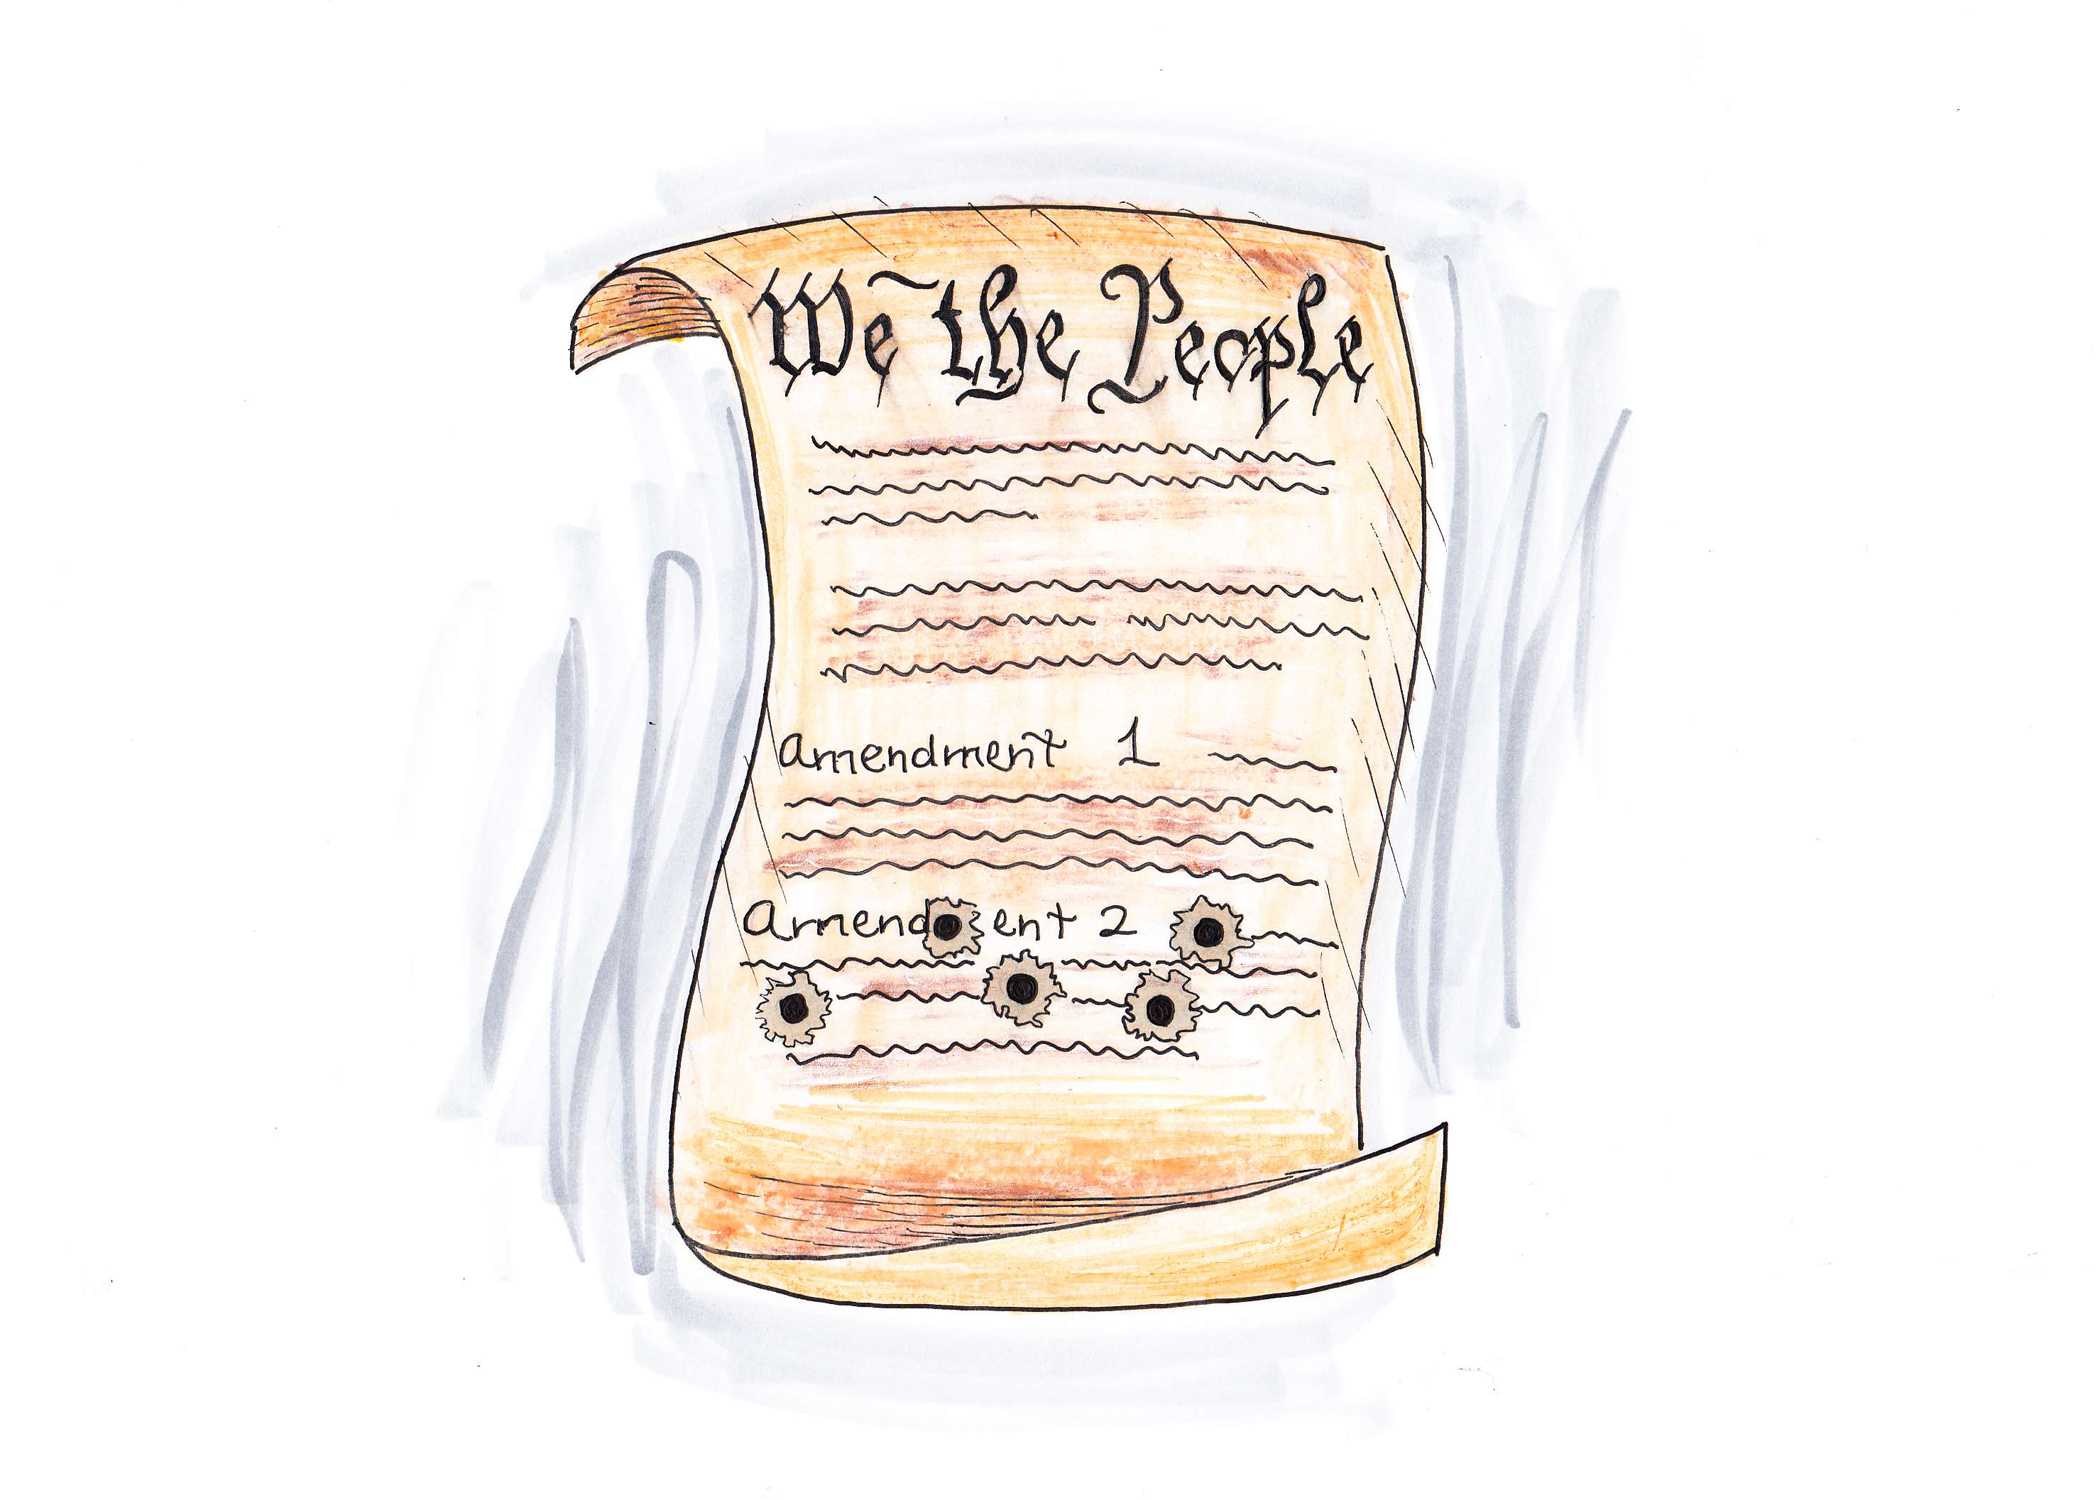 We the People
amendment 1
amend ent 2